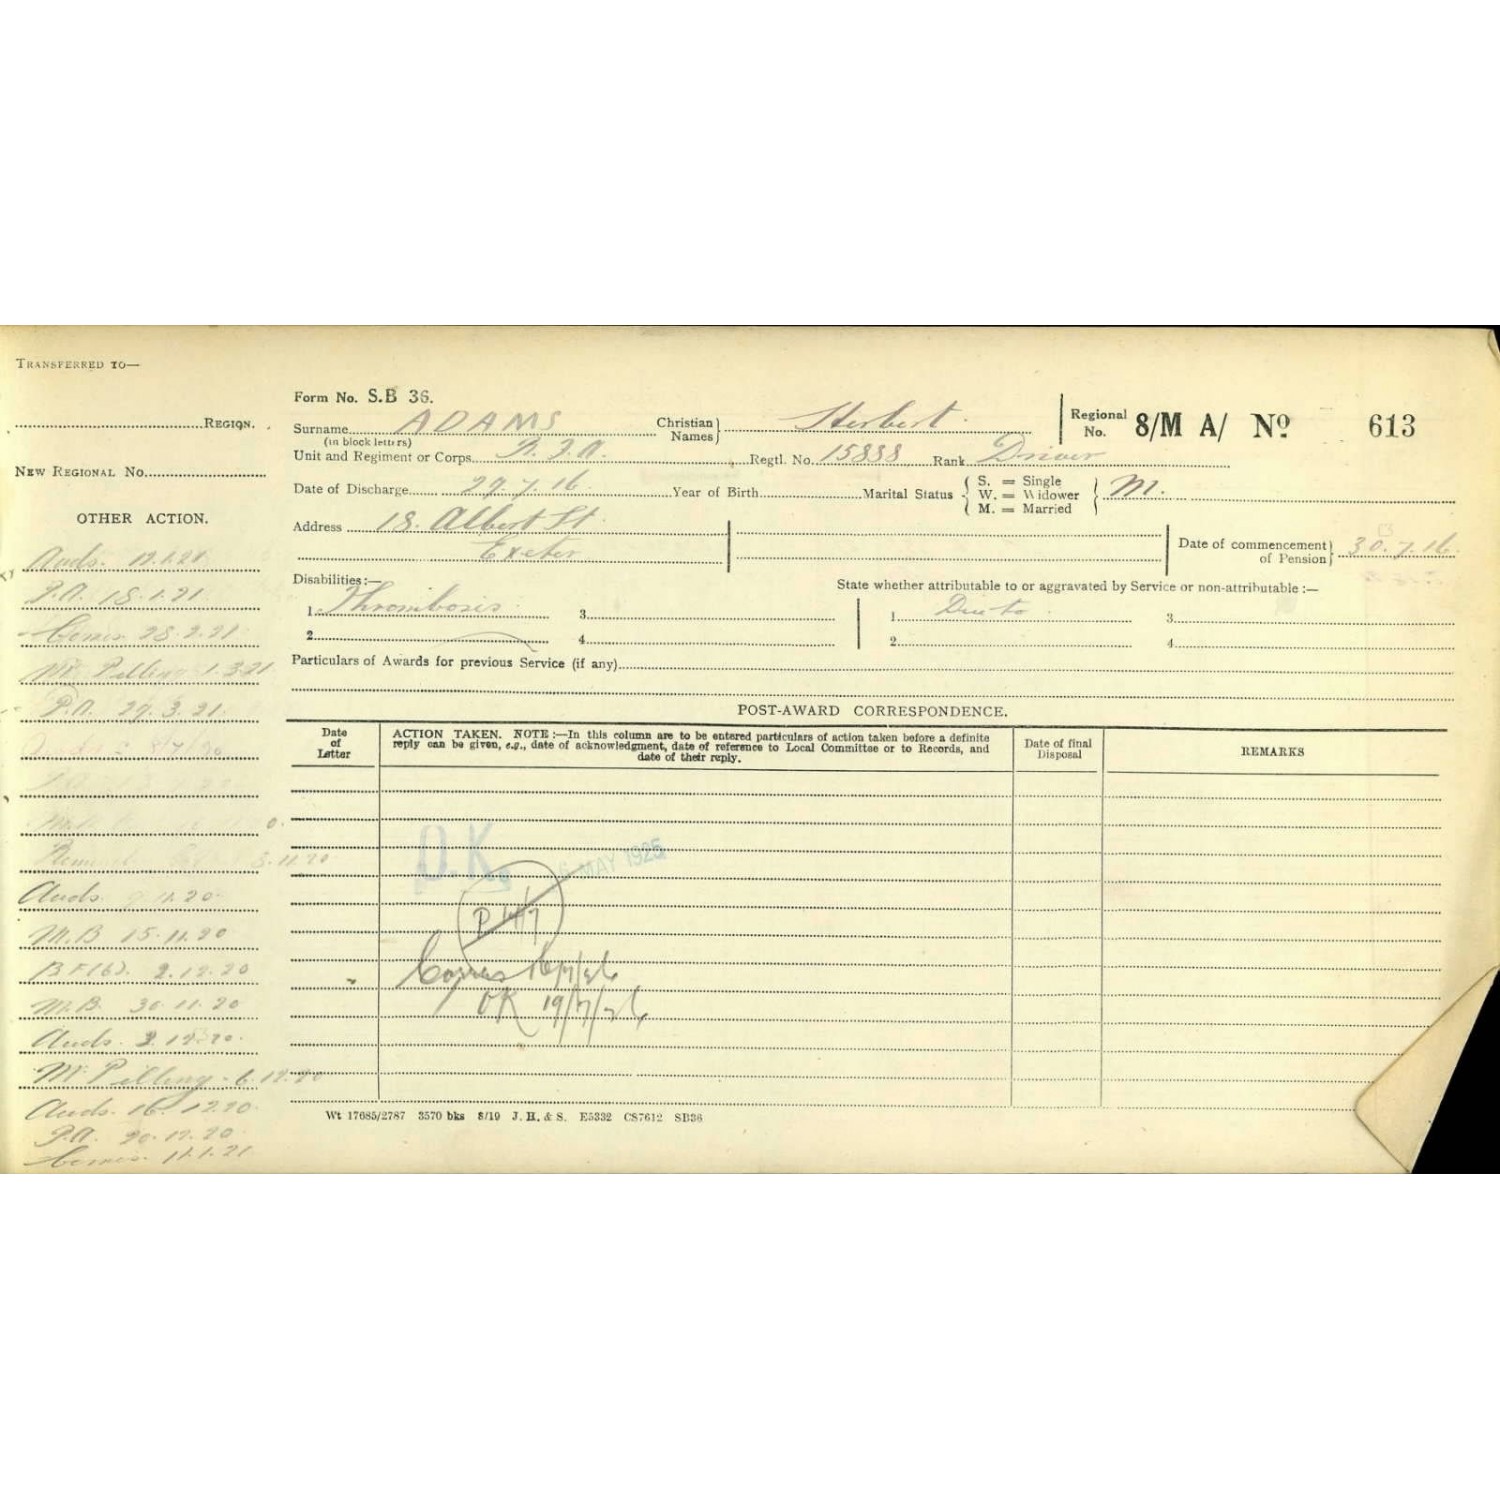 TRANSFERRED TO—
REGION.
NEW REGIONAL No.
OTHER ACTION.
Auds. 12.1.21
P.A. 18.1.21
28.2.21
Mr Pelling 1.3.21
P.A. 29.3.21.
Auds 9.11.20
M.B 15.11.20
BF(6). 2.12.20
M.B. 30.11.20
Auds. 2.12.20.
Mr Pelling. 6.12.20
Auds. 16.12.20.
P.A. 20.12.20.
11.1.21
Form No. S.B 36.
Surname ADAMS Christian Names Herbert. Regional No. 8/M A/ No 613
(in block letters)
Unit and Regiment or Corps R.F.A. Regtl. No. 15838 Rank Driver
Date of Discharge 29.7.16. Year of Birth Marital Status S. = Single W. = Widower M. = Married M.
Address 18. Albert St.
Exeter
Date of commencement of Pension 30.7.16.
Disabilities:— State whether attributable to or aggravated by Service or non-attributable :—
1. Thrombosis 3. 1. Due to. 3.
2. 4. 2. 4.
Particulars of Awards for previous Service (if any)
POST-AWARD CORRESPONDENCE.
Date of Letter
ACTION TAKEN. NOTE :—In this column are to be entered particulars of action taken before a definite
reply can be given, e.g., date of acknowledgment, date of reference to Local Committee or to Records, and
date of their reply.
Date of final Disposal
REMARKS
O.K. MAY 1925
Corres 16/7/26
OK 19/7/26
Wt 17685/2787 3570 bks 8/19 J. H. & S. E5332 CS7612 SB36